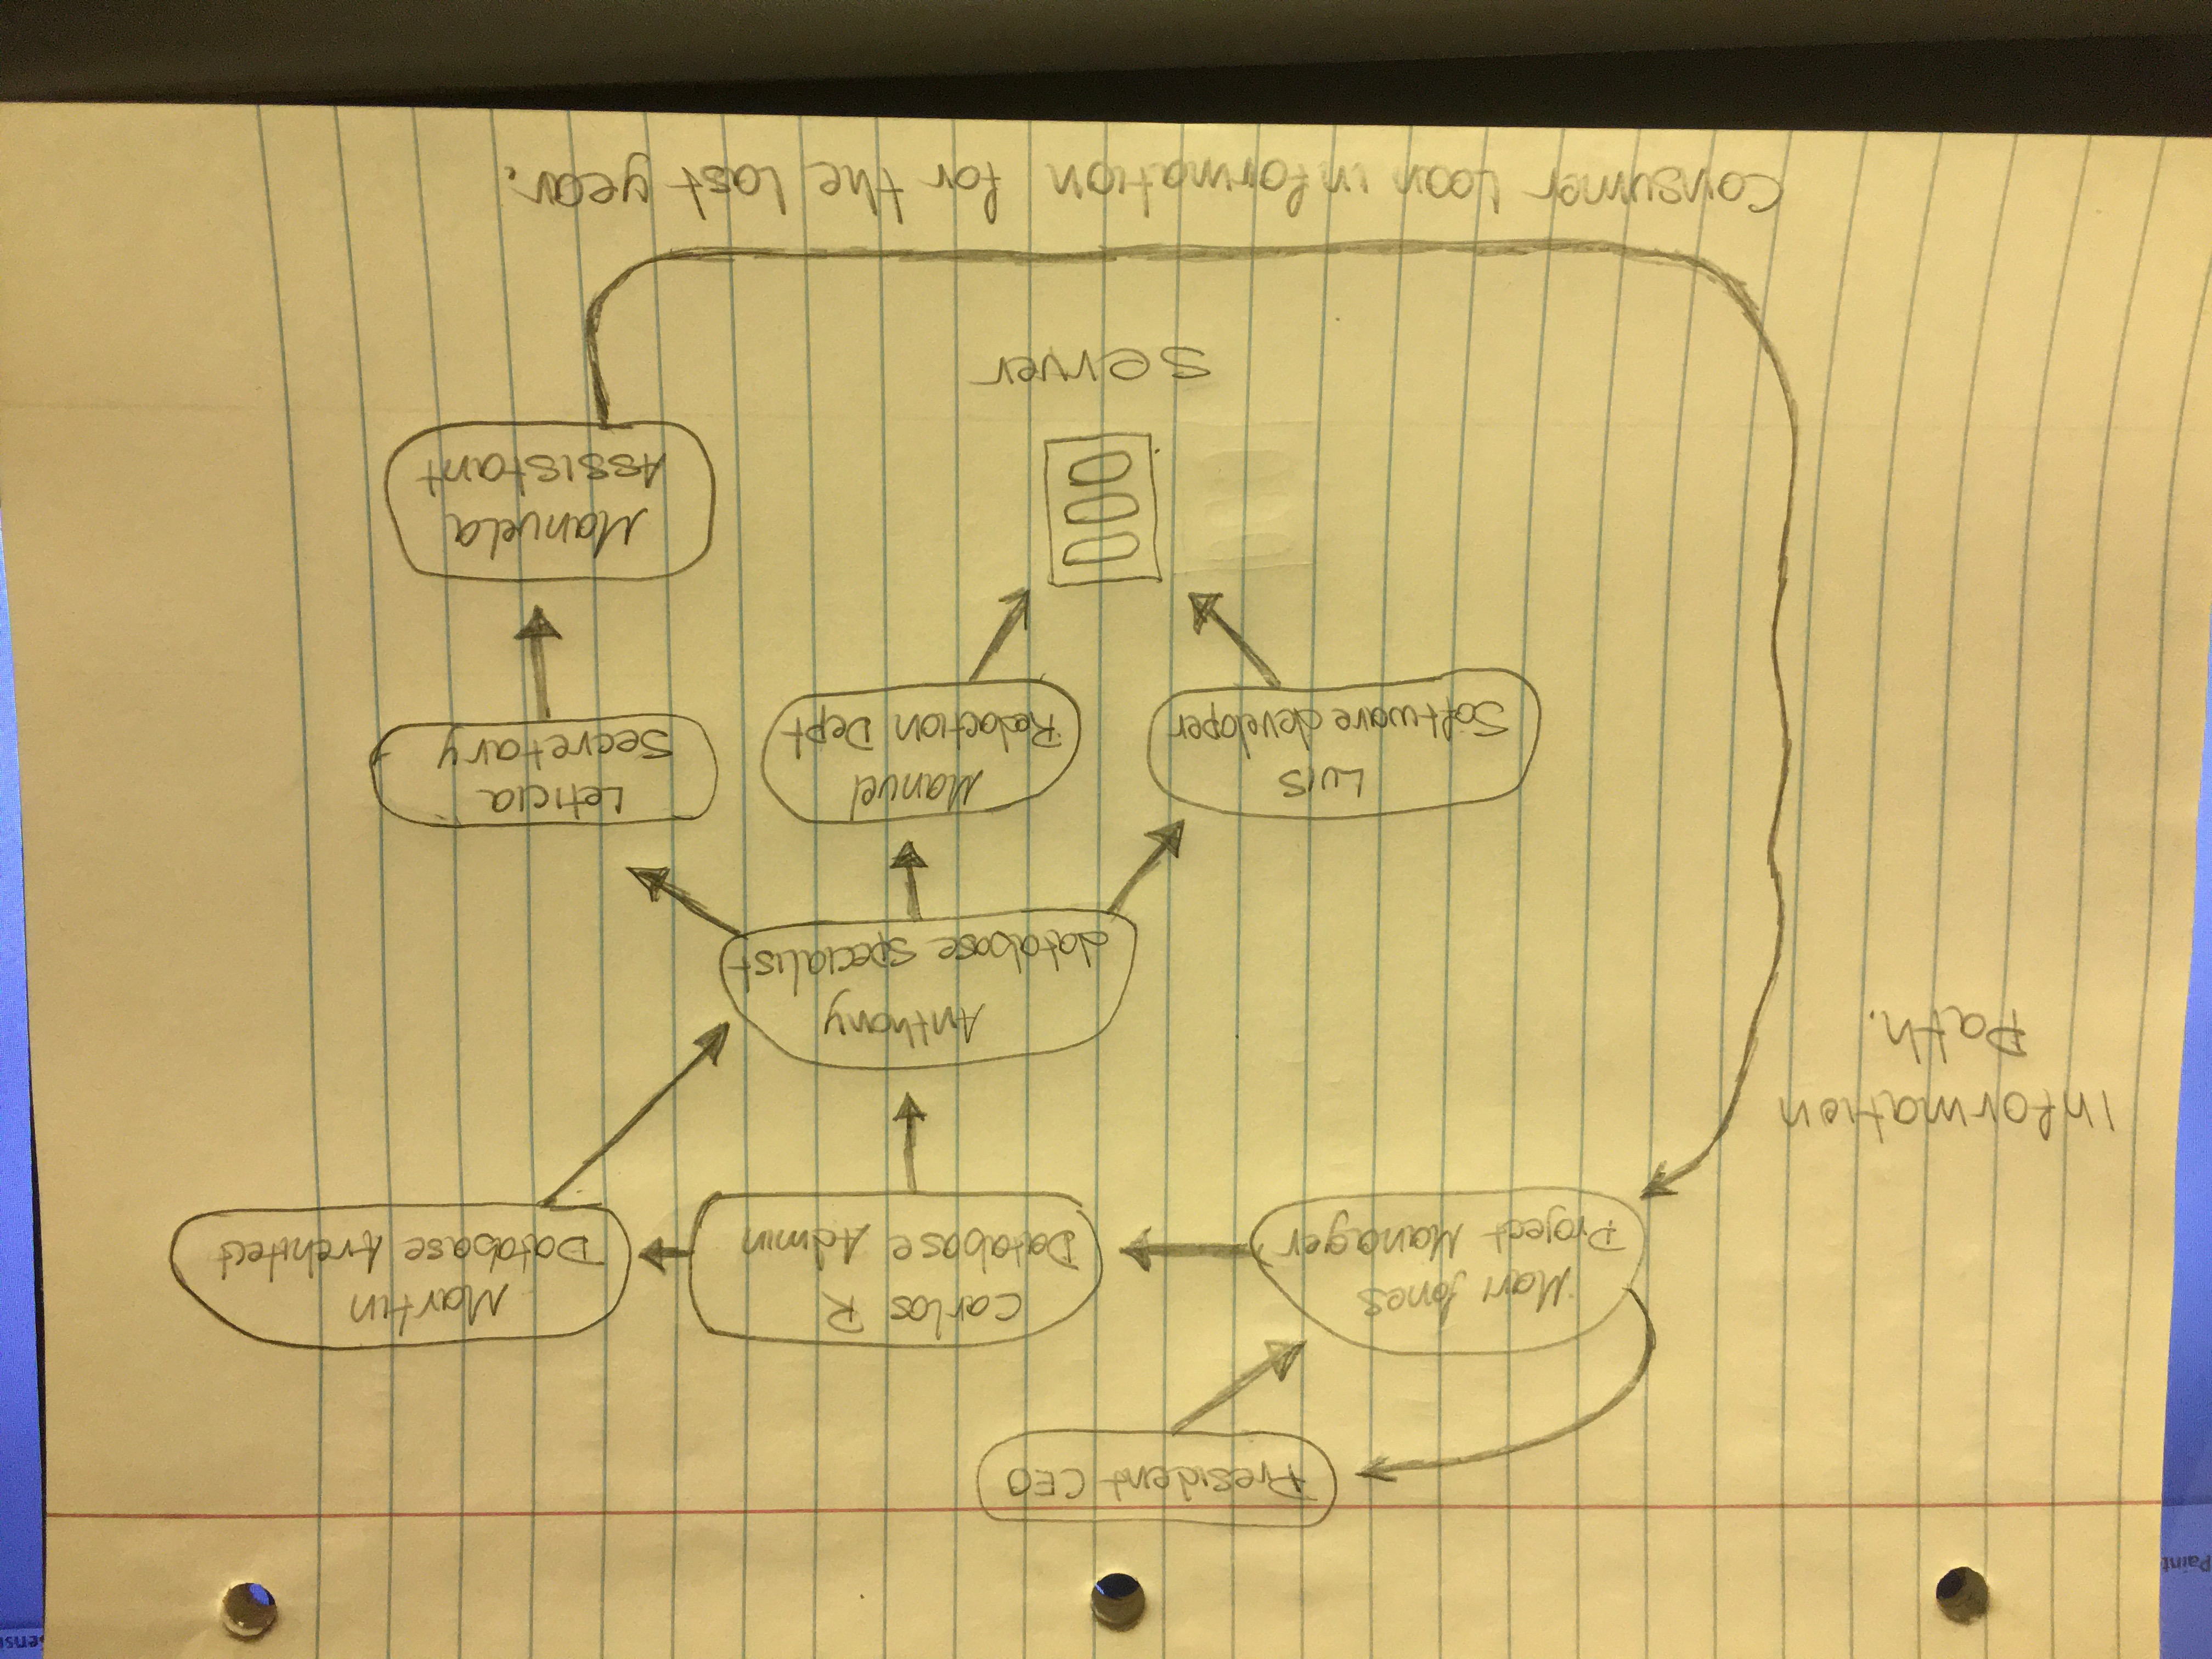 Paint
Sensi
President CEO
Mari Jones
Project Manager
Carlos R
Database Admin
Martin
Database Architect
Information
Path.
Anthony
database specialist
Luis
Software developer
Manuel
Redaction Dept
Leticia
Secretary
Manuela
Assistant
Server
Consumer Loan information for the last year.